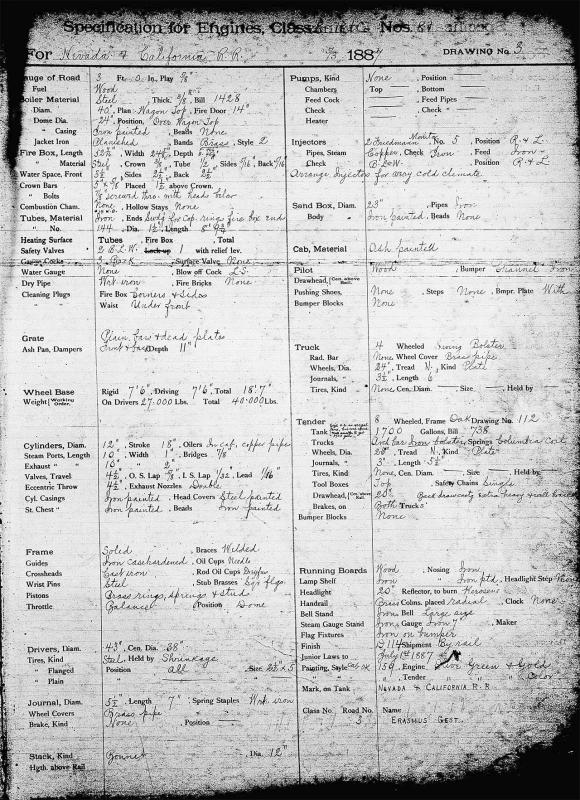 Specification for Engines, Class Nos
For Nevada & California R.R. 1887 DRAWING No. 3
Gauge of Road 3 Ft. 0 In., Play 3/8
Fuel Wood
Boiler Material Steel Thick. Bill 1428
Diam. 40" Plan Wagon Top, Fire Door 14"
Dome Dia. 24", Position, Over Wagon Top
" Casing Iron painted, Beads None
Jacket Iron Planished, Bands Brass, Style 2
Fire Box, Length Width Depth
" Material Steel, Crown 3/8, Tube 1/2, Sides 5/16, Back 5/16
Water Space, Front Sides 2½" Back 2½"
Crown Bars Placed 1½ above Crown.
" Bolts 7/8 screwed thro. with head below
Combustion Cham. None, Hollow Stays None
Tubes, Material Iron, Ends Swdg for Cop. rings fire box end
" No. 144, Dia. 1½", Length
Heating Surface Tubes Fire Box Total
Safety Valves 2 B.L.W. Lock up 1 with relief lev.
Gauge Cocks 3 Surface Valve None
Water Gauge None, Blow off Cock L.S.
Dry Pipe Wrt iron, Fire Bricks None
Cleaning Plugs Fire Box Corners & Sides
" " Waist Under front
Grate Plain bars & dead plates
Ash Pan, Dampers Front & Back Depth 11"
Wheel Base Rigid 7'6", Driving 7'6", Total 18'7"
Weight (Working Order.) On Drivers 27.000 Lbs. Total 40.000 Lbs.
Cylinders, Diam. 12", Stroke 18", Oilers In cab, copper pipes
Steam Ports, Length 10", Width 1", Bridges 7/8
Exhaust " " 10" " 2"
Valves, Travel 4½", O. S. Lap 5/8, I. S. Lap 1/32, Lead 1/16"
Eccentric Throw 4½", Exhaust Nozzles Double
Cyl. Casings Iron painted, Head Covers Steel painted
St. Chest " Iron painted, Beads Iron painted
Frame Solid, Braces Welded
Guides Iron casehardened, Oil Cups Needle
Crossheads Cast iron Rod Oil Cups Dreyfus
Wrist Pins Steel Stub Brasses
Pistons Brass rings, springs & stud
Throttle Balance Position Dome
Drivers, Diam. 43", Cen. Dia. 38"
Tires, Kind Steel Held by Shrinkage
" Flanged Position All Size 2½ x 5
" Plain
Journal, Diam. 5½", Length 7" Spring Staples Wrt. iron
Wheel Covers Brass pipe
Brake, Kind None Position
Stack, Kind Bonnet Dia. 12"
Hgth. above Rail
Pumps, Kind None, Position
Chambers Top Bottom
Feed Cock " Feed Pipes
Check " Check "
Heater
Injectors 2 Friedmann Monitor No. 5 Position R & L
Pipes, Steam Copper, Check Iron Feed Iron
Check B.L.W. Position R & L
Arrange Injectors for very cold climate
Sand Box, Diam. 23", Pipes Iron
Body Iron painted. Beads None
Cab, Material Ash painted
Pilot Wood, Bumper Channel Iron
Drawhead, (Cen. above Rail)
Pushing Shoes, None, Steps None, Bmpr. Plate With
Bumper Blocks None
Truck 4 Wheeled Swing Bolster
Rad. Bar None Wheel Cover Brass pipe
Wheels, Dia. 24", Tread N., Kind Plate
Journals, " 3½", Length 6
Tires, Kind None, Cen. Diam. Size Held by
Tender 8 Wheeled, Frame Oak Drawing No. 112
Tank 1700 Gallons, Bill 738
Trucks Springs Columbia Coil
Wheels, Dia. 26", Tread N., Kind Plate
Journals, " 3", Length 5½
Tires, Kind None, Cen. Diam. Size Held by
Tool Boxes Top, Safety Chains Single
Drawhead, (Cen. above Rail) 20" Back drawcastg extra heavy
Brakes, on Both Trucks
Bumper Blocks None
Running Boards Wood, Nosing Iron
Lamp Shelf Iron Iron ptd, Headlight Step
Headlight 20" Reflector, to burn Kerosene
Handrail Brass Colns. placed radial, Clock None
Bell Stand Iron, Bell Large size
Steam Gauge Stand Iron, Gauge Iron 7", Maker
Flag Fixtures Iron on bumper
Finish D 114 Shipment By rail
Junior Laws to July 1st 1887
Painting, Style Cab OK 159, Engine Olive Green & Gold
" , Tender " " Color
Mark, on Tank NEVADA & CALIFORNIA R.R
Class No. Road No. Name
3 ERASMUS GEST.